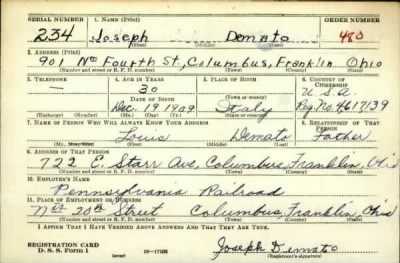 SERIAL NUMBER 1. NAME (Print) ORDER NUMBER
234 Joseph Demato 480
(First) (Middle) (Last)
2. ADDRESS (Print)
901 Nth Fourth St., Columbus, Franklin Ohio
(Number and street or R. F. D. number) (Town) (County) (State)
3. TELEPHONE 4. AGE IN YEARS 5. PLACE OF BIRTH 6. COUNTRY OF CITIZENSHIP
— 30 U.S.A.
DATE OF BIRTH (Town or county)
Dec. 19 1909 Italy Reg No. 4617139
(Mo.) (Day) (Yr.) (State or country)
7. NAME OF PERSON WHO WILL ALWAYS KNOW YOUR ADDRESS 8. RELATIONSHIP OF THAT PERSON
Louis Demato Father
(First) (Middle) (Last)
9. ADDRESS OF THAT PERSON
722 E. Starr Ave, Columbus, Franklin, Ohio
(Number and street or R. F. D. number) (Town) (County) (State)
10. EMPLOYER'S NAME
Pennsylvania Railroad
11. PLACE OF EMPLOYMENT OR BUSINESS
Nth 20th Street Columbus, Franklin, Ohio
(Number and street or R. F. D. number) (Town) (County) (State)
I AFFIRM THAT I HAVE VERIFIED ABOVE ANSWERS AND THAT THEY ARE TRUE.
REGISTRATION CARD
D. S. S. Form 1 (over) Joseph Demato
(Registrant's signature)